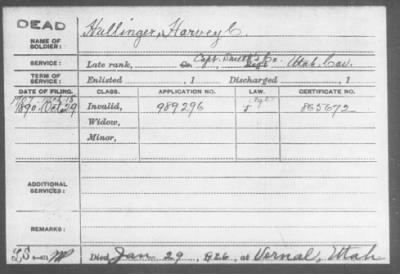 DEAD
NAME OF SOLDIER: Hullinger, Harvey C.
SERVICE: Late rank, Capt. Smith's Co. Utah Cav.
TERM OF SERVICE: Enlisted , 1 Discharged , 1
DATE OF FILING. CLASS. APPLICATION NO. LAW. CERTIFICATE NO.
1890 Oct. 29 Invalid, 989296 865672
Widow,
Minor,
ADDITIONAL SERVICES:
REMARKS:
Died Jan 29, 1926, at Vernal, Utah